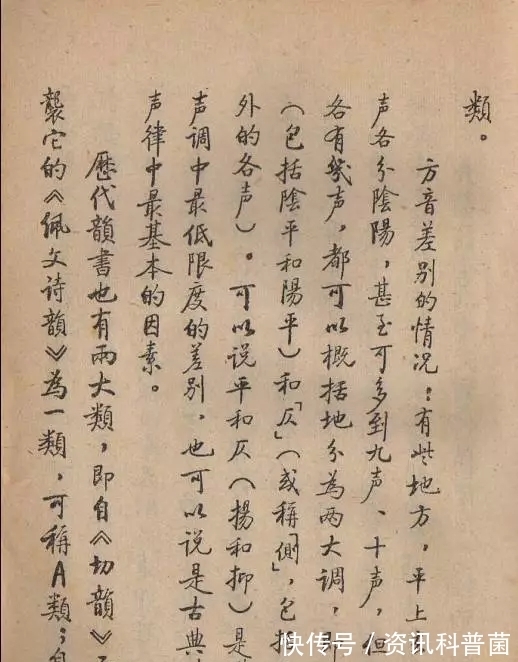 類。
方音差别的情况：有些地方，平上去
声各分陰陽，甚至可多到九声、十声，但
各有幾声，都可以概括地分為两大調，即
（包括陰平和陽平）和「仄」（或稱「側」，包括
外的各声）。可以说平和仄（揚和抑）是
声調中最低限度的差别，也可以说是古典
声律中最基本的因素。
歷代韻書也有兩大類，即自《切韻》
襲它的《佩文诗韻》為一類，可稱A類；
快传号／资讯科普菌